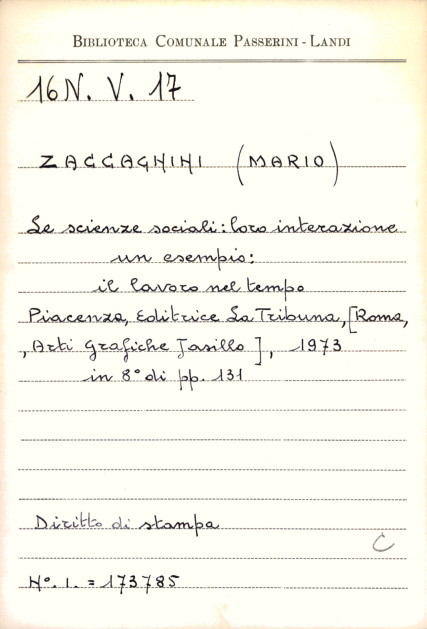 BIBLIOTECA COMUNALE PASSERINI - LANDI
16 N. V. 17
ZACCAGNINI (MARIO)
Le scienze sociali: loro interazione
un esempio:
il lavoro nel tempo
Piacenza, Editrice La Tribuna, [Roma,
, Arti Grafiche Jasillo], 1973
in 8° di pp. 131
Diritto di stampa
C
N°. I. = 173785